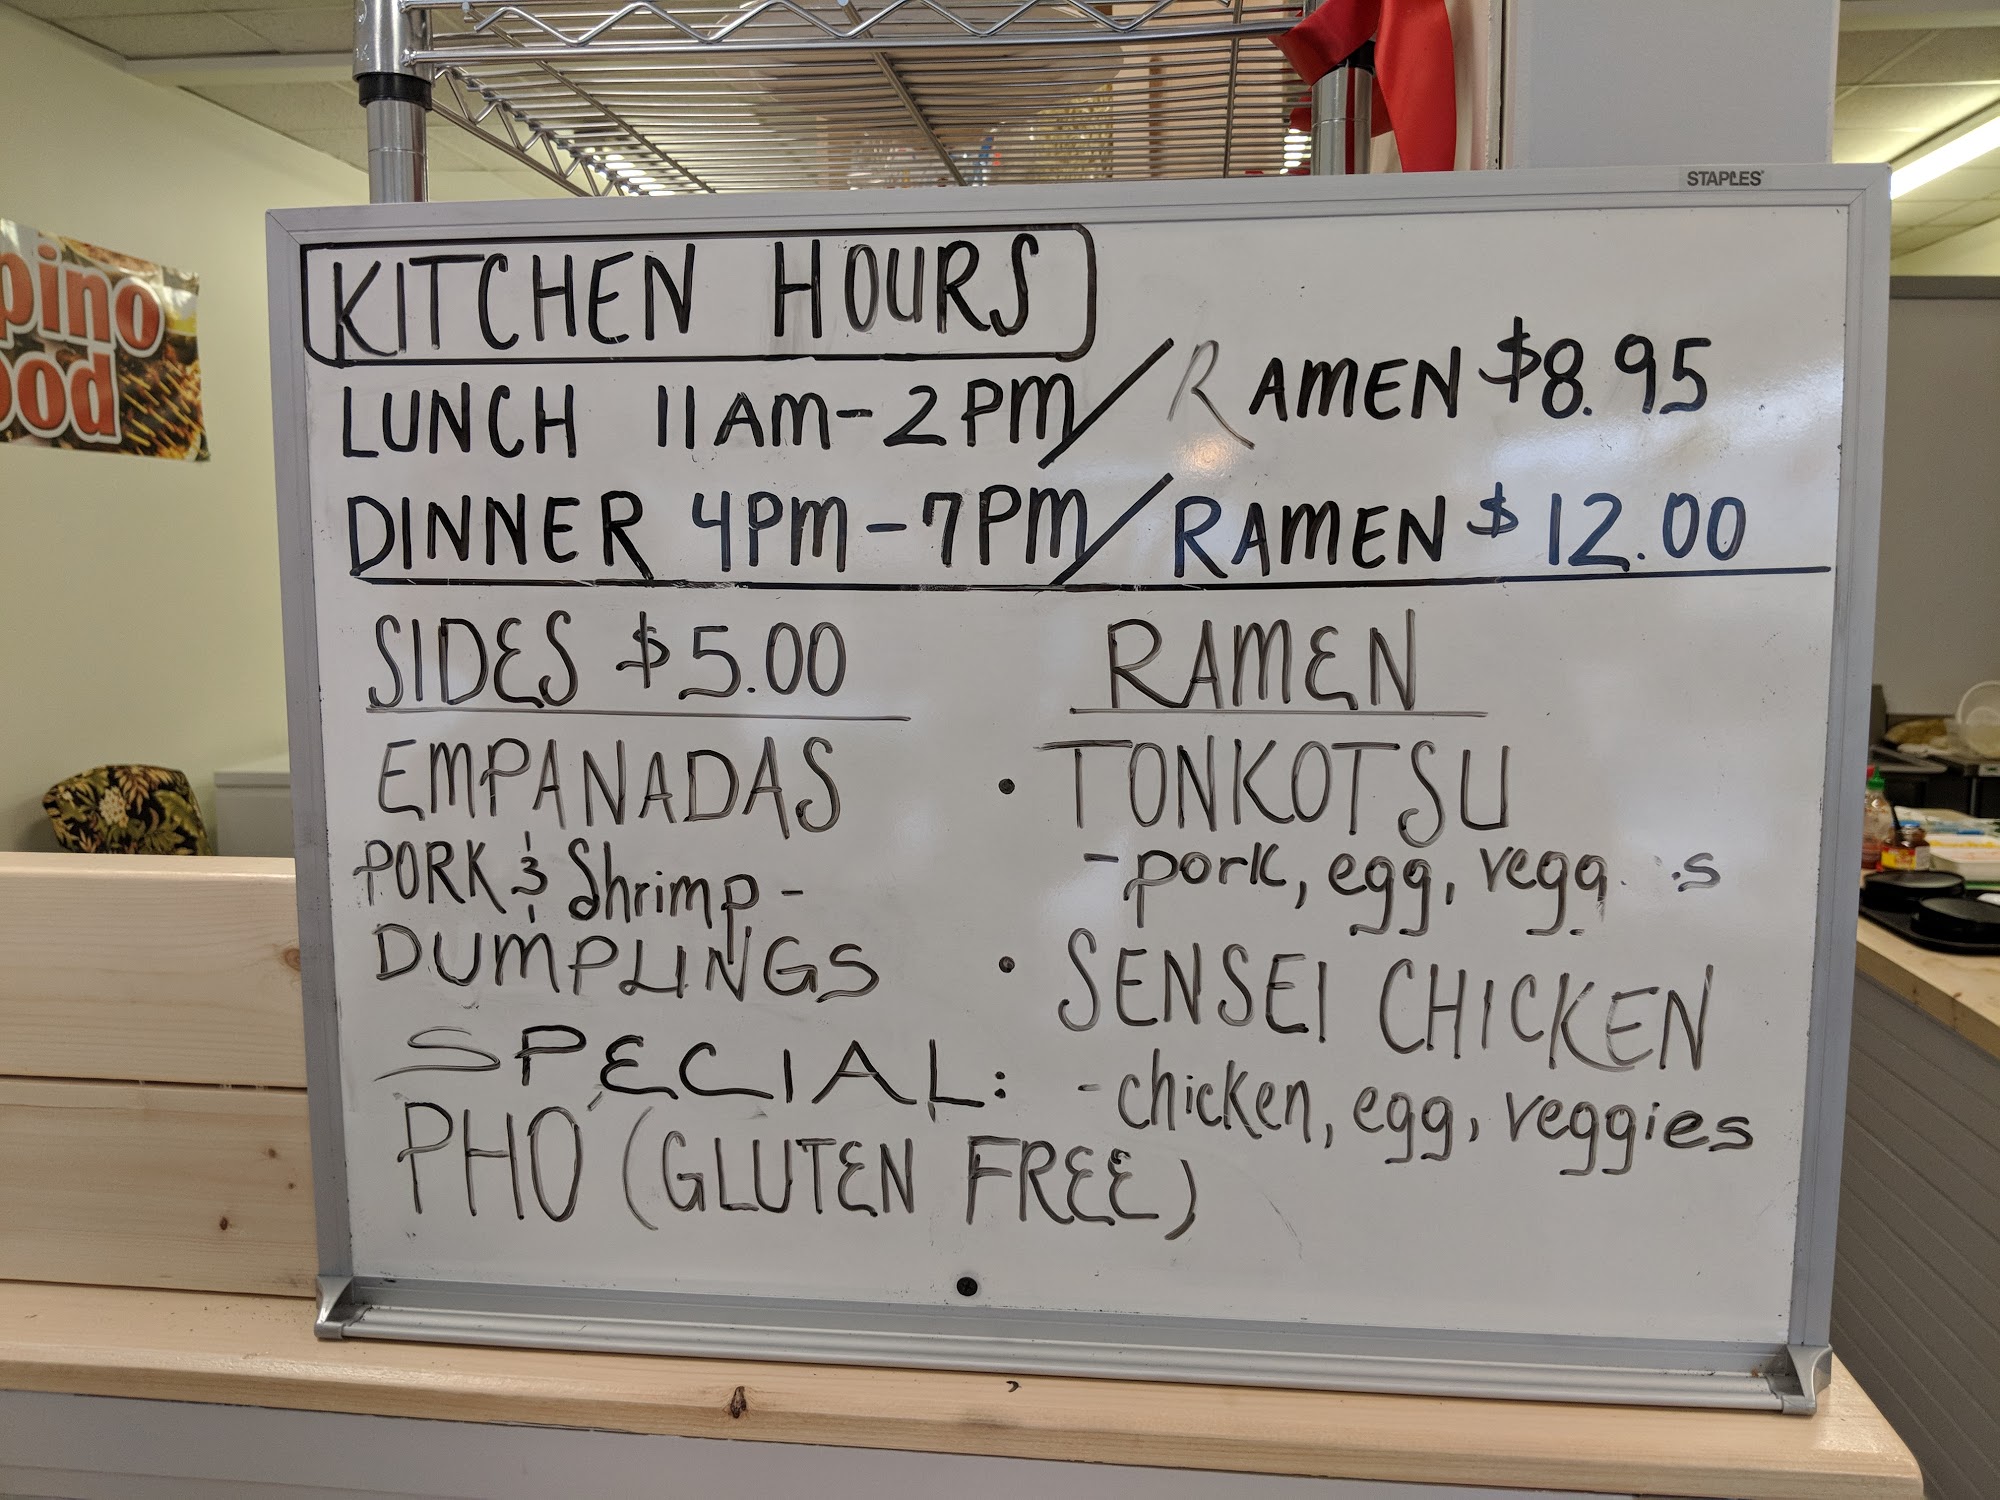 STAPLES
pino
ood
KITCHEN HOURS
LUNCH 11AM-2PM/RAMEN $8.95
DINNER 4PM-7PM/RAMEN $12.00
SIDES $5.00
EMPANADAS
PORK & Shrimp-
DUMPLINGS
SPECIAL:
PHO (GLUTEN FREE)
RAMEN
• TONKOTSU
-pork, egg, vegg s
• SENSEI CHICKEN
-chicken, egg, veggies